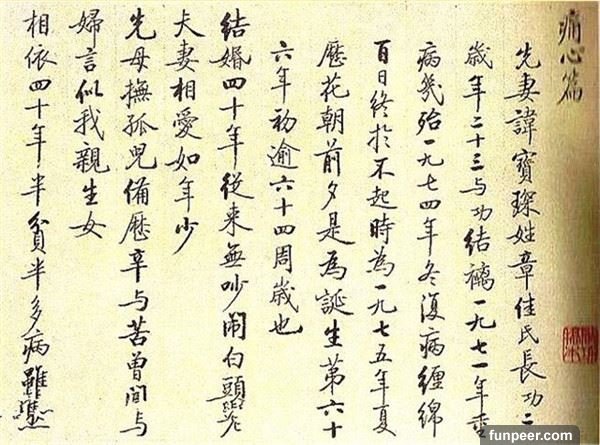 痛心篇
先妻諱寶琛姓章佳氏長功二
歲年二十三与功結褵一九七一年重
病幾殆一九七四年冬復病纏綿
百日終於不起時為一九七五年夏
歷花朝前夕是為誕生第六十
六年初逾六十四周歲也
結婚四十年從来無吵闹白頭老
夫妻相愛如年少
先母撫孤兒備歷辛与苦曾闻与
婦言似我親生女
相依四十年半貧半多病雖然
funpeer.com